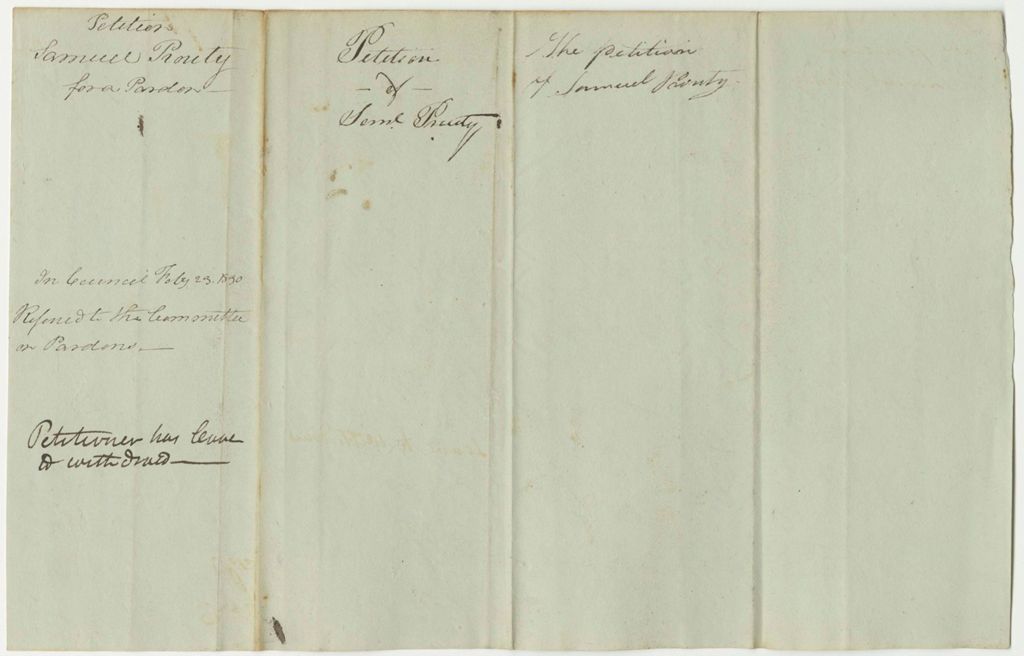 Petition
Samuel Prouty
for a Pardon
In Council Feby 23. 1830
Refered to the Committee
on Pardons.
Petitioner has leave
to withdraw
Petition
of
Saml Prouty
The petition
of Samuel Prouty.